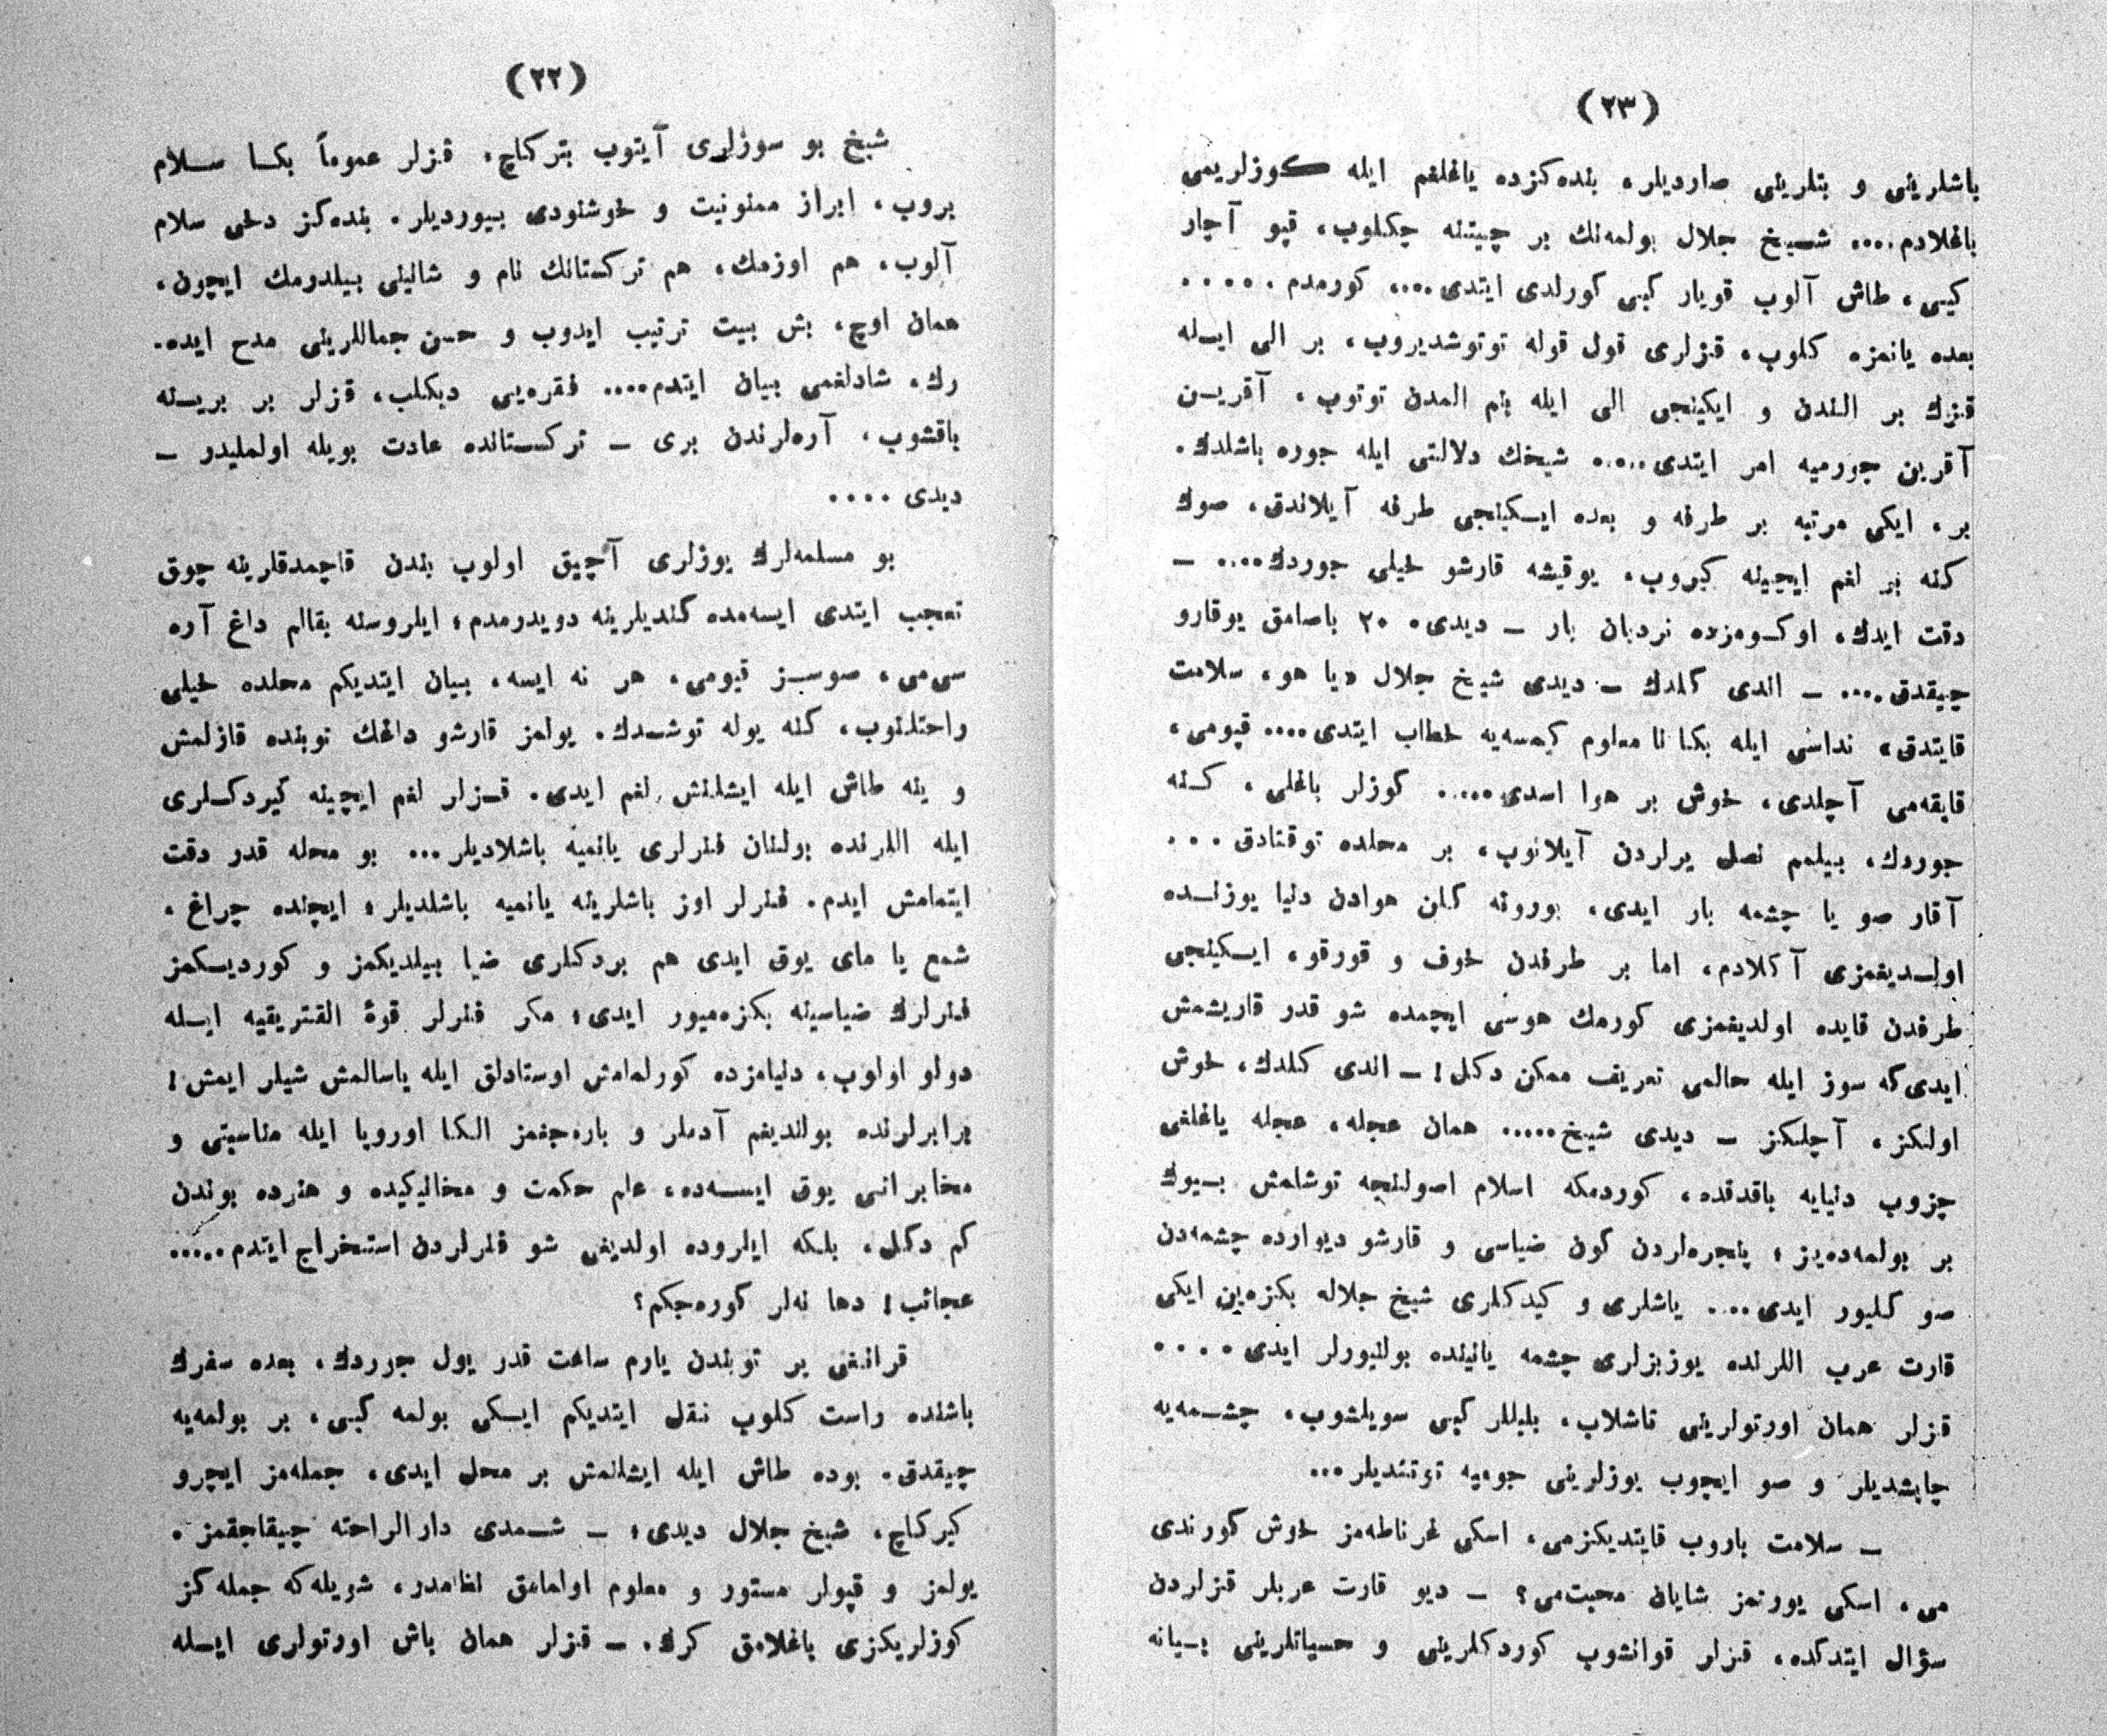 (٢٢)
شیخ بو سوزلری آیتوب بترکاچ، قزلر عموماً بکا سلام
بروب، ابراز ممنونیت و خوشنودی بیوردیلر. بنده‌کز دخی سلام
آلوب، هم اوزمك، هم ترکستانك نام و شانینی بیلدرمك ایچون،
همان اوچ، بش بیت ترتیب ایدوب و حسن جماللرینی مدح ایده‌
رك، شادلغمی بیان ایتدم.... فقره‌یی دیکلب، قزلر بر برینه
باقشوب، آره‌لرندن بری – ترکستانده عادت بویله اولملیدر –
دیدی ....
بو مسلمه‌لرك یوزلری آچیق اولوب بندن قاچمدقلرینه چوق
تعجب ایتدی ایسه‌مده کندیلرینه دویدرمدم؛ ایلروسنه بقالم داغ آره
سی‌می، صوسز قیومی، هر نه ایسه، بیان ایتدیکم محلده خیلی
راحتلنوب، کنه یوله توشدك. یولمز قارشو داغك توبنده قازلمش
و ینه طاش ایله ایشلنش لغم ایدی. قزلر لغم ایچینه کیردکلری
ایله اللرنده بولنان فنرلری یانمیه باشلادیلر... بو محله قدر دقت
ایتمامش ایدم. فنرلر اوز باشلرینه یانمیه باشلدیلر؛ ایچنده چراغ،
شمع یا مای یوق ایدی هم بردکلری ضیا بیلدیکمز و کوردیکمز
فنرلرك ضیاسینه بکزه‌میور ایدی؛ مکر فنرلر قوهٔ القتریقیه ایله
دولو اولوب، دنیامزده کورلمامش اوستادلق ایله یاسالمش شیلر ایمش!
برابرلرنده بولندیغم آدملر و باره‌جغمز الکا اوروپا ایله مناسبتی و
مخابراتی یوق ایسه‌ده، علم حکمت و مخانیکیده و هنرده بوندن
کم دکل، بلکه ایلروده اولدیغی شو فنرلردن استخراج ایتدم.....
عجائب! دها نه‌لر کوره‌جکم؟
قرانغی بر توبندن یارم ساعت قدر یول جوردك، بعده سفرك
باشنده راست کلوب نقل ایتدیکم ایسکی بولمه کبی، بر بولمه‌یه
چیقدق. بوده طاش ایله ایشلانمش بر محل ایدی، جمله‌مز ایچرو
کیرکاچ، شیخ جلال دیدی؛ – شمدی دارالراحته چیقاجقمز.
یولمز و قپولر مستور و معلوم اولمامق لظامدر، شویله‌که جمله‌کز
کوزلریکزی باغلامق کرك. – قزلر همان باش اورتولری ایسله
(٢٣)
باشلرینی و بتلرینی صاردیلر، بنده‌کزده یاغلغم ایله کوزلریمی
باغلادم.... شیخ جلال بولمه‌نك بر چیتنه چکلوب، قپو آچار
کبی، طاش آلوب قویار کبی کورلدی ایتدی.... کورمدم .....
بعده یانمزه کلوب، قزلری قول قوله توتوشدیروب، بر الی ایله
قزك بر الندن و ایکینجی الی ایله بنم المدن توتوب، آقرین
آقرین جورمیه امر ایتدی..... شیخك دلالتی ایله جوره باشلدك.
بر، ایکی مرتبه بر طرفه و بعده ایکینجی طرفه آیلاندق، صوك
کنه بر لغم ایچینه کیروب، یوقیشه قارشو خیلی جوردك.... –
دقت ایدك، اوکومزده نردبان بار – دیدی. ۲۰ باصامق یوقارو
چیقدق.... – الدی کلدك – دیدی شیخ جلال «یا هو، سلامت
قایتدق» نداسی ایله بکا نا معلوم کیمسه‌یه خطاب ایتدی.... قپومی،
قاپقه‌می آچلدی، خوش بر هوا اسدی..... کوزلر باغلی، کنه
جوردك، بیلمم نصل یرلردن آیلانوب، بر محلده توقتادق ...
آقار صو یا چشمه بار ایدی، بورونه کلن هوادن دنیا یوزنده
اولدیغمزی آکلادم، اما بر طرفدن خوف و قورقو، ایکینجی
طرفدن قایده اولدیغمزی کورمك هوسی ایچمده شو قدر قاریشمش
ایدی‌که سوز ایله حالمی تعریف ممکن دکل! – الدی کلدك، خوش
اولکز، آچلکز – دیدی شیخ..... همان عجله، عجله یاغلغی
چزوب دنیایه باقدقده، کوردمکه اسلام اصولنجه توشامش بیوك
بر بولمه‌ده‌یز؛ پنجره‌لردن کون ضیاسی و قارشو دیوارده چشمه‌دن
صو کلیور ایدی.... یاشلری و کیدکلری شیخ جلاله بکزه‌ین ایکی
قارت عرب اللرنده یوزبزلری چشمه یانینده بولنیورلر ایدی ....
قزلر همان اورتولرینی تاشلاب، بلبللر کبی سویلشوب، چشمه‌یه
چابشدیلر و صو ایچوب یوزلرینی جومیه توتندیلر...
– سلامت باروب قایتدیکزمی، اسکی غرناطه‌مز خوش کورندی
می، اسکی یورتمز شایان محبت‌می؟ – دیو قارت عربلر قزلردن
سؤال ایتدکده، قزلر قوانشوب کوردکلرینی و حسیاتلرینی بیانه